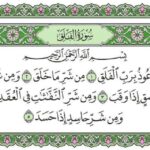 سُورَةُ الْفَلَقِ
بِسْمِ اللَّهِ الرَّحْمَٰنِ الرَّحِيمِ
عُوذُ بِرَبِّ الْفَلَقِ ١ مِن شَرِّ مَا خَلَقَ ٢ وَمِن
سِقٍ إِذَا وَقَبَ ٣ وَمِن شَرِّ النَّفَّٰثَٰتِ فِي الْعُقَدِ
وَمِن شَرِّ حَاسِدٍ إِذَا حَسَدَ ٥